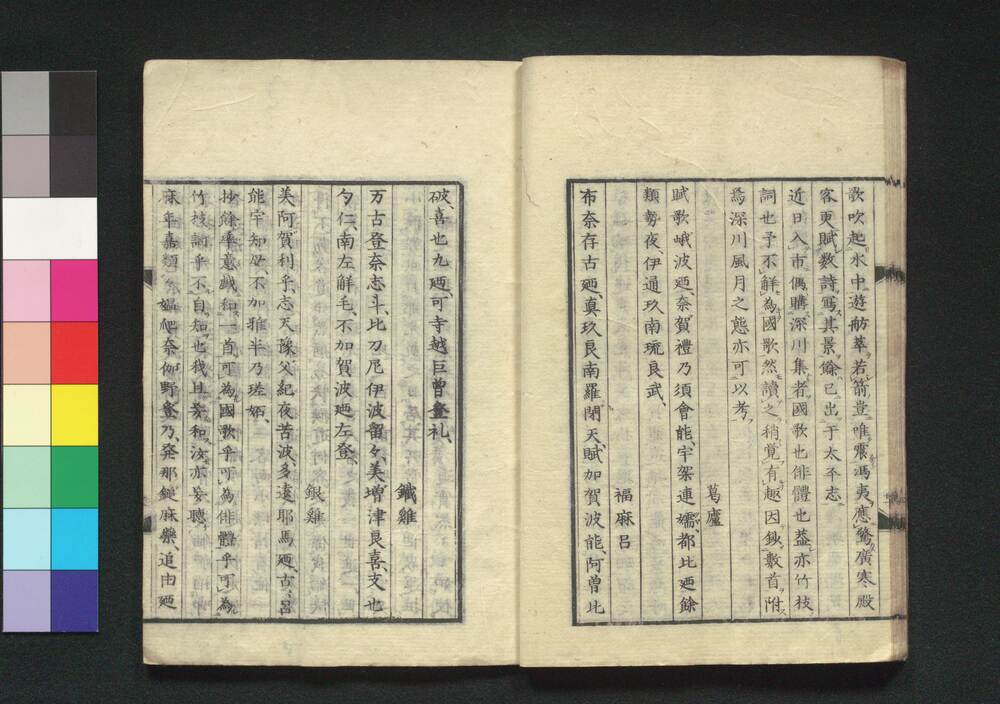 歌吹起水中遊舫萃若箭豈唯震馮夷應驚廣寒殿
客更賦數詩寫其景餘已出于太平志
近日入市偶購深川集者國歌也俳體也蓋亦竹枝
詞也予不解為國歌然讀之稍覺有趣因鈔數首附
焉深川風月之態亦可以考
葛廬
賦歌峨波廼奈賀禮乃須會能、宇架連嬬、都比廼餘
類勢夜、伊通玖、南琉良武、
福麻呂
布奈存古廼、真玖良南羅閇天、賦加賀波能、阿曽比
破、喜也九廼、可寺越巨曽登礼、
鐵雞
万古登奈志斗、比刀尼伊波留々、美増津良喜、支也
勺仁、南左解毛、不加賀波廼左登、
銀雞
美阿賀利乎、志天豫父紀夜、苦波、多遠耶馬廼、古、呂
能宇知、不加推半乃瑳娜、
抄餘率意戲和一首可為國歌乎可為俳體乎可為
竹枝詞乎不自知也我且妄和汝亦妄聽、
麻年嘉類、媼爬奈伽野登乃、発那鏈麻縏、追由廼